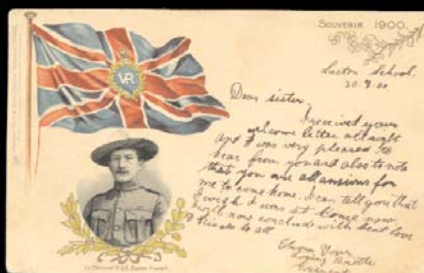 SOUVENIR 1900.
VR
Lt. Colonel R.S.S. Baden Powell.
Luton School.
20.9.00.
Dear sister,
I received your
welcome letter allright
and I was very pleased to
hear from you and also to note
that you are all anxious for
me to come home. I can tell you that
I wish I was at home now.
will now conclude with best love
& kisses to all
loving